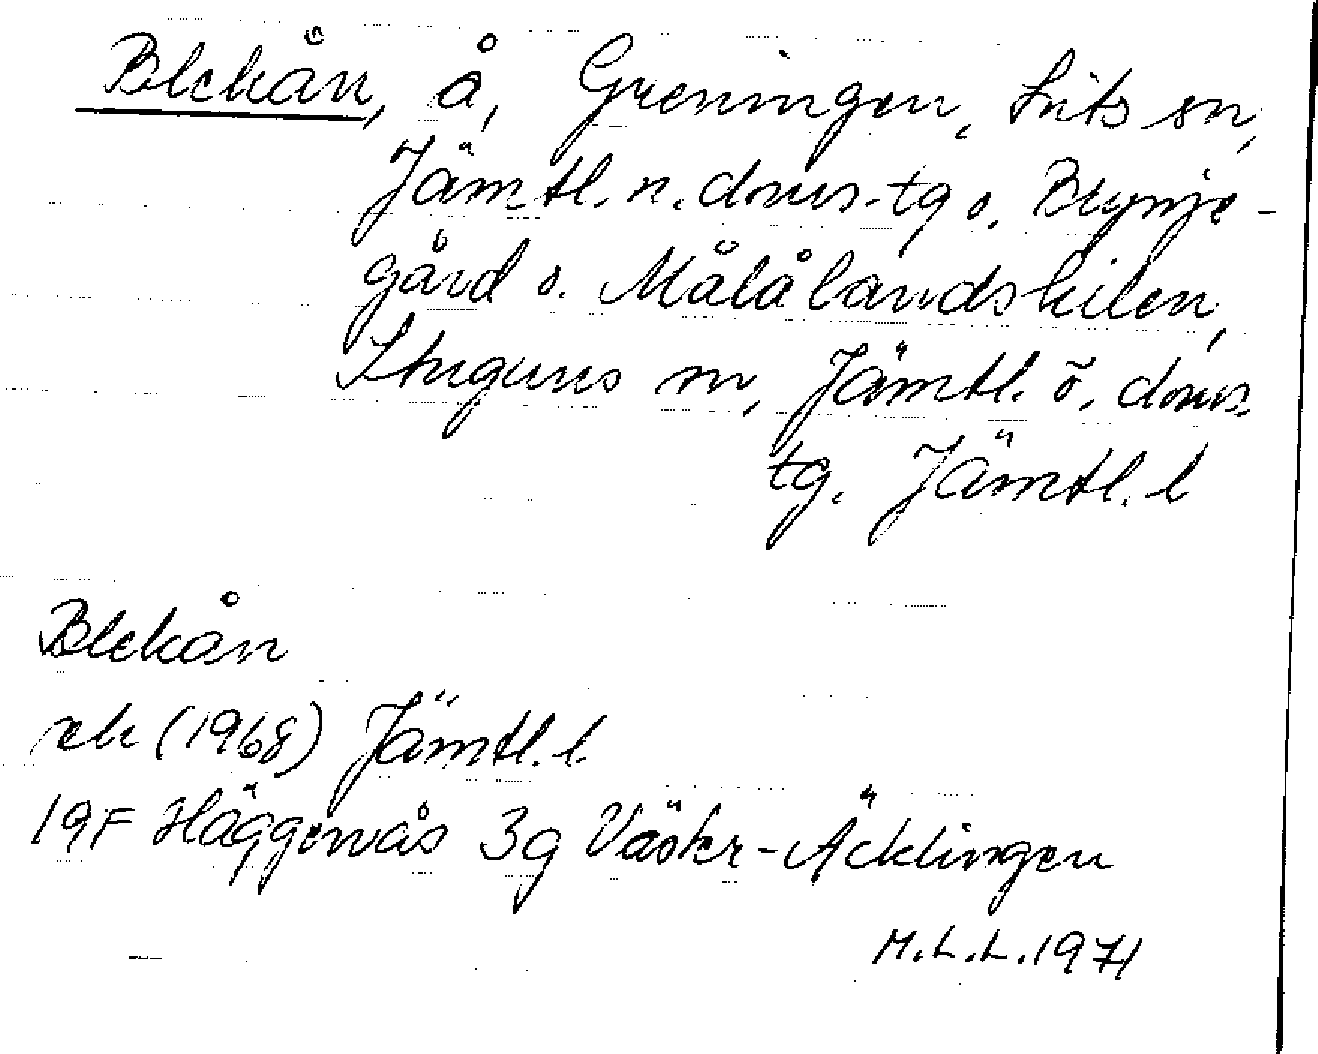 Blekån, å, Greningen, Lits sn,
Jämtl. n. doms. tg o. Blynje-
gård o. Målålandskilen,
Stuguns sn, Jämtl. ö. doms.
tg. Jämtl. l
Blekån
ek (1968) Jämtl. l.
19F Häggenås 3g Väster-Äcklingen
M.L.L. 1971